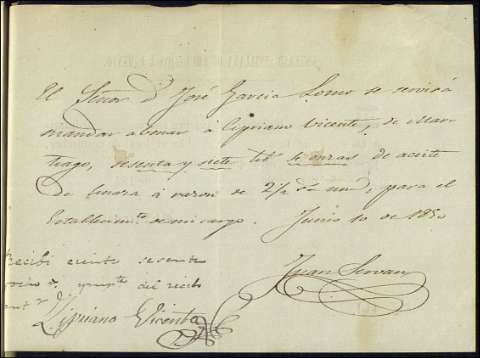 El Señor Dn José Garcia Lomo se servirá
mandar abonar á Cipriano Vicente, de Mar-
tiago, sesenta y siete lib. onzas de aceite
de linaza á razon de 2 1/2 para el
Establecimto de mi cargo. Junio 10 de 1850
Juan Servan
Recibi ciento sesenta
del recibo
Cipriano Vicente